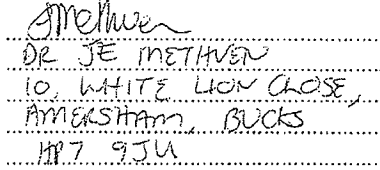 JMethven
DR JE METHVEN
10, WHITE LION CLOSE,
AMERSHAM, BUCKS
HP7 9JU